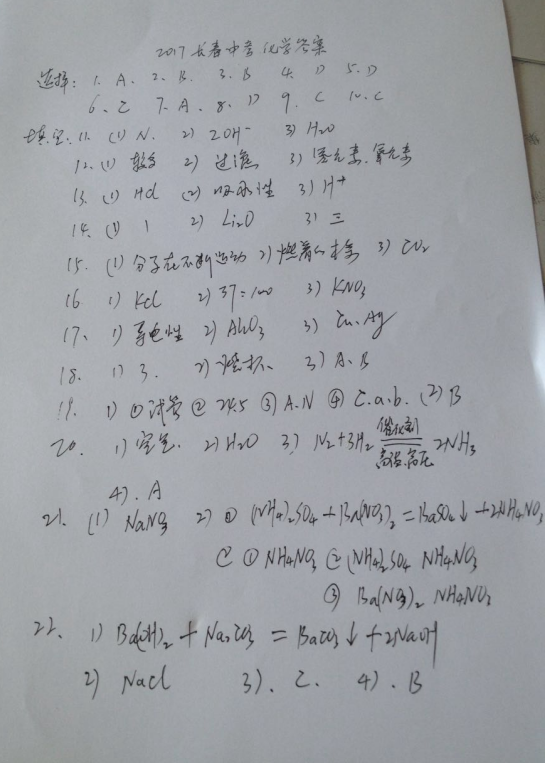 2017长春中考化学答案
选择: 1. A. 2. B. 3. B 4. D 5. D
6. C 7. A. 8. D 9. C 10. C
填空 11. (1) N. 2) 2OH⁻ 3) H₂O
12. (1) 2) 过滤 3) 氢元素、氧元素
13. (1) HCl (2) 吸水性 3) H⁺
14. (1) 1 2) Li₂O 3) 三
15. (1) 分子在不断运动 2) 燃着的木条 3) CO₂
16. 1) KCl 2) 37:100 3) KNO₃
17. 1) 导电性 2) Al₂O₃ 3) Cu. Ag
18. 1) 3. 2) 烧杯 3) A. B
19. 1) ① 试管 ② 24.5 ③ A. N ④ C. a. b. (2) B
20. 1) 空气. 2) H₂O 3) N₂+3H₂ 催化剂 高温高压 2NH₃
4). A
21. (1) NaNO₃ 2) ① (NH₄)₂SO₄ + Ba(NO₃)₂ = BaSO₄↓ + 2NH₄NO₃
① NH₄NO₃ ② (NH₄)₂SO₄ NH₄NO₃
③ Ba(NO₃)₂ NH₄NO₃
22. 1) Ba(OH)₂ + Na₂CO₃ = BaCO₃↓ + 2NaOH
2) NaCl 3). C. 4). B